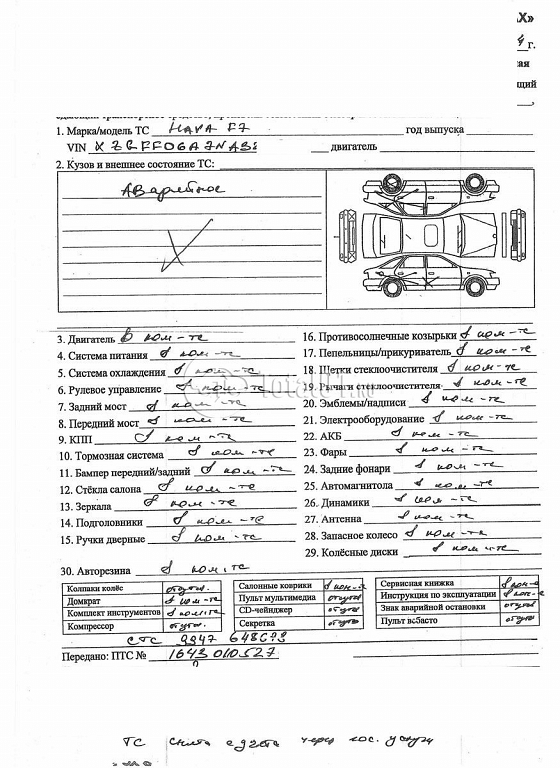 Х»
г.
ая
щий
1. Марка/модель ТС HAVAL F7 год выпуска
VIN двигатель
2. Кузов и внешнее состояние ТС:
Аварийное
3. Двигатель в ком-те
4. Система питания в ком-те
5. Система охлаждения в ком-те
6. Рулевое управление в ком-те
7. Задний мост в ком-те
8. Передний мост в ком-те
9. КПП в ком-те
10. Тормозная система в ком-те
11. Бампер передний/задний в ком-те
12. Стёкла салона в ком-те
13. Зеркала в ком-те
14. Подголовники в ком-те
15. Ручки дверные в ком-те
16. Противосолнечные козырьки в ком-те
17. Пепельницы/прикуриватель в ком-те
18. Щетки стеклоочистителя в ком-те
19. Рычаги стеклоочистителя в ком-те
20. Эмблемы/надписи в ком-те
21. Электрооборудование в ком-те
22. АКБ в ком-те
23. Фары в ком-те
24. Задние фонари в ком-те
25. Автомагнитола в ком-те
26. Динамики в ком-те
27. Антенна в ком-те
28. Запасное колесо в ком-те
29. Колёсные диски в ком-те
30. Авторезина в ком-те
Колпаки колёс отсутв.
Домкрат в ком-те
Комплект инструментов в ком-те
Компрессор отсутв.
Салонные коврики в ком-те
Пульт мультимедиа отсутв
CD-чейнджер отсутв
Секретка отсутв
Сервисная книжка в ком-те
Инструкция по эксплуатации в ком-те
Знак аварийной остановки отсутв
Пульт вебасто отсутв
СТС 9947 648673
Передано: ПТС №
ТС снята с учета через гос. услуги